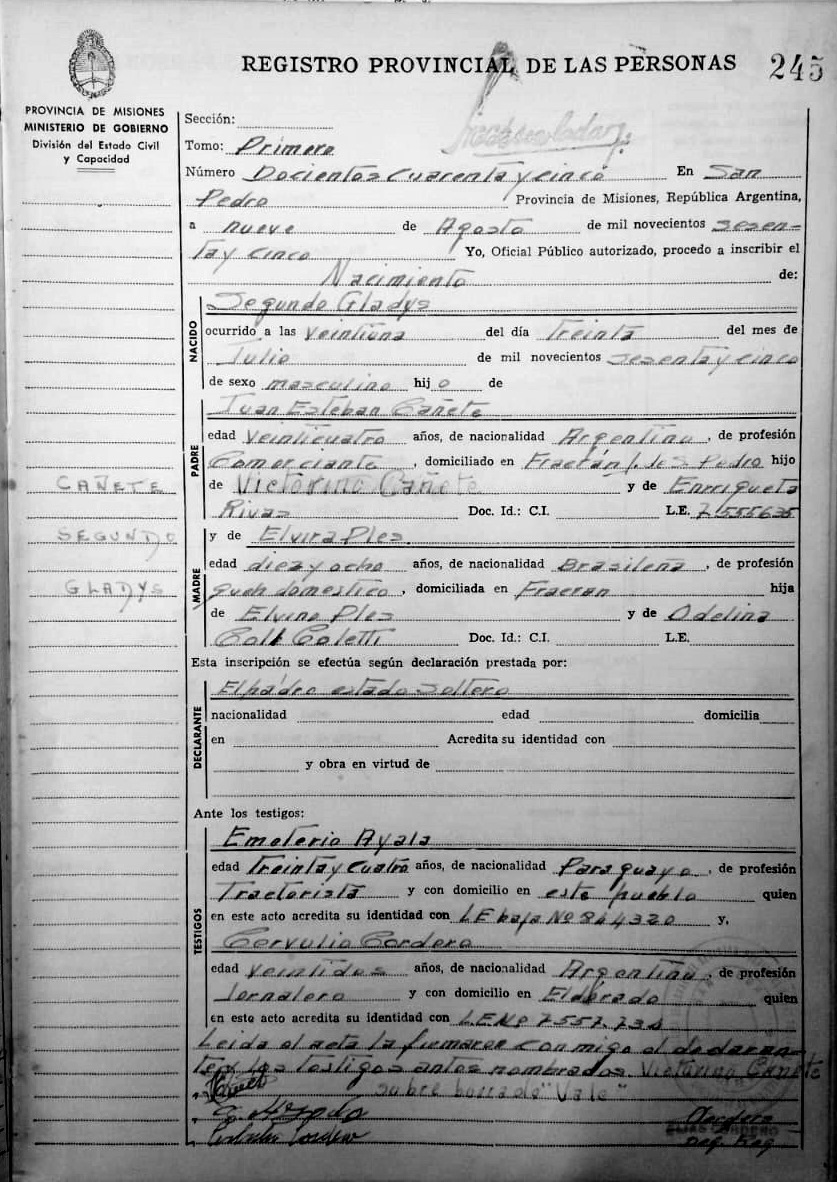 REGISTRO PROVINCIAL DE LAS PERSONAS
245
PROVINCIA DE MISIONES
MINISTERIO DE GOBIERNO
División del Estado Civil
y Capacidad
CAÑETE
SEGUNDO
GLADYS
Sección:
Tomo: Primero
Número Docientos cuarenta y cinco En San
Pedro Provincia de Misiones, República Argentina,
a nueve de Agosto de mil novecientos sesen-
ta y cinco Yo, Oficial Público autorizado, procedo a inscribir el
Nacimiento de:
NACIDO
Segundo Gladys
ocurrido a las veintiuna del día treinta del mes de
Julio de mil novecientos sesenta y cinco
de sexo masculino hijo de
PADRE
Juan Esteban Cañete
edad veinticuatro años, de nacionalidad Argentina, de profesión
Comerciante, domiciliado en Fracrán J. de S Pedro hijo
de Victorino Cañete y de Enrriqueta
Rivas Doc. Id.: C.I. L.E. 7.555635
MADRE
y de Elvira Ples
edad diez y ocho años, de nacionalidad Brasileña, de profesión
queh domestico, domiciliada en Fracran hija
de Elvino Ples y de Odelina
Coletti Doc. Id.: C.I. L.E.
Esta inscripción se efectúa según declaración prestada por:
DECLARANTE
El pádre estado soltero
nacionalidad edad domicilia
en Acredita su identidad con
y obra en virtud de
Ante los testigos:
TESTIGOS
Emeterio Ayala
edad treinta y cuatro años, de nacionalidad Paraguayo, de profesión
Tractorista y con domicilio en este pueblo quien
en este acto acredita su identidad con LE baja No 844320 y,
Cervulio Cordero
edad veintidos años, de nacionalidad Argentina, de profesión
Jornalero y con domicilio en Eldorado quien
en este acto acredita su identidad con L.E.No 7557.734
Leida el acta la firmaron conmigo el declaran-
te y los testigos antes nombrados. Victorino Cañete
sobre borrado "Vale"
ELIAS CORDERO